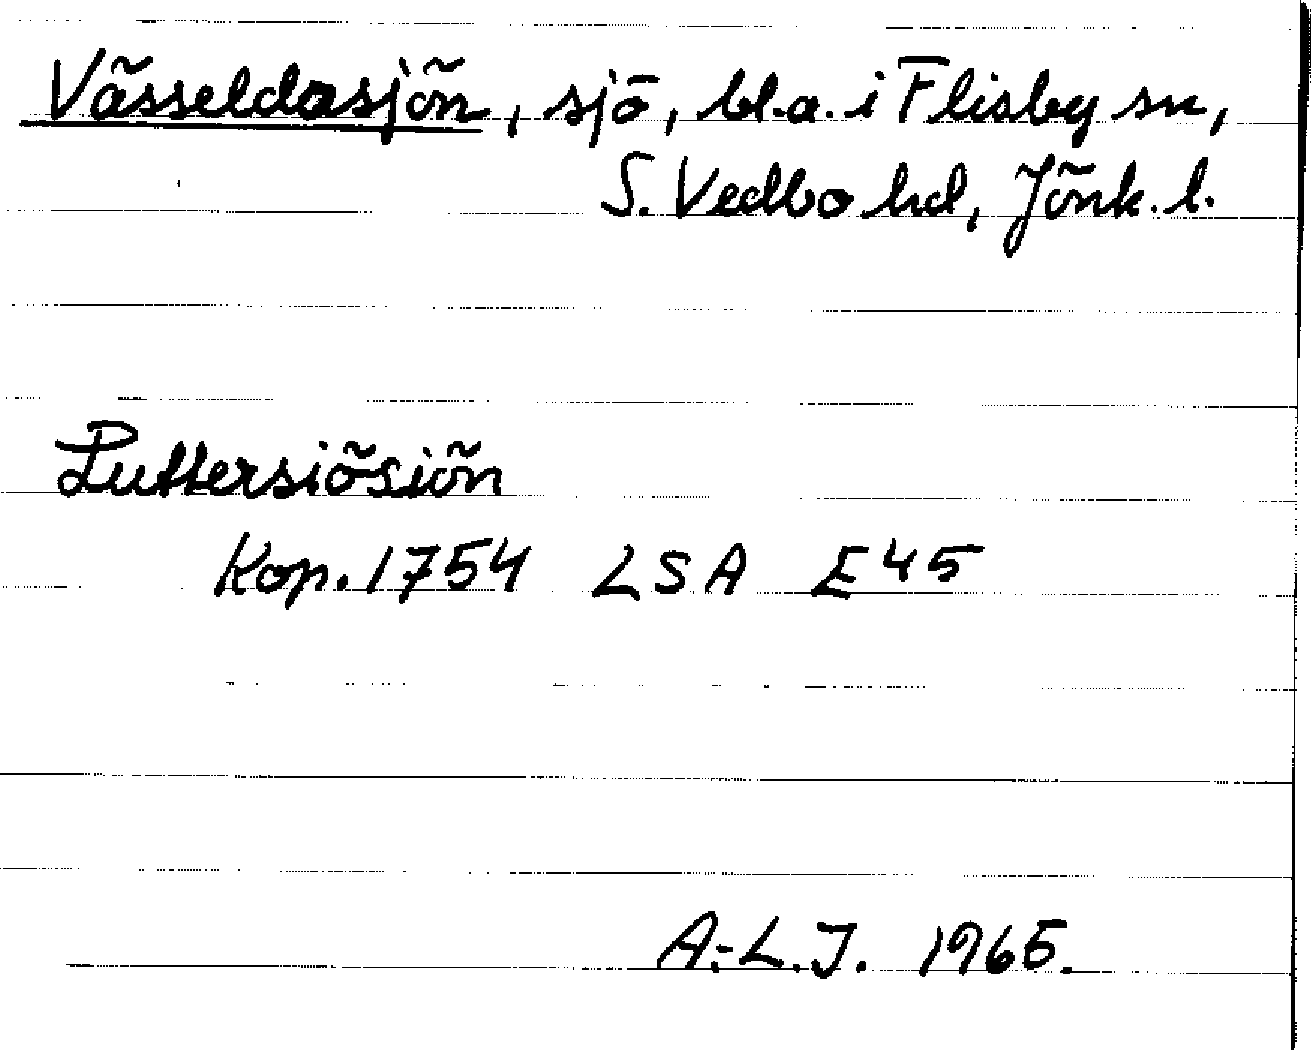 Vässeldasjön, sjö, bl.a. i Flisby sn,
S. Vedbo hd, Jönk. l.
Luttersiösiön
Kop. 1754 LSA E45
A.-L.J. 1965.